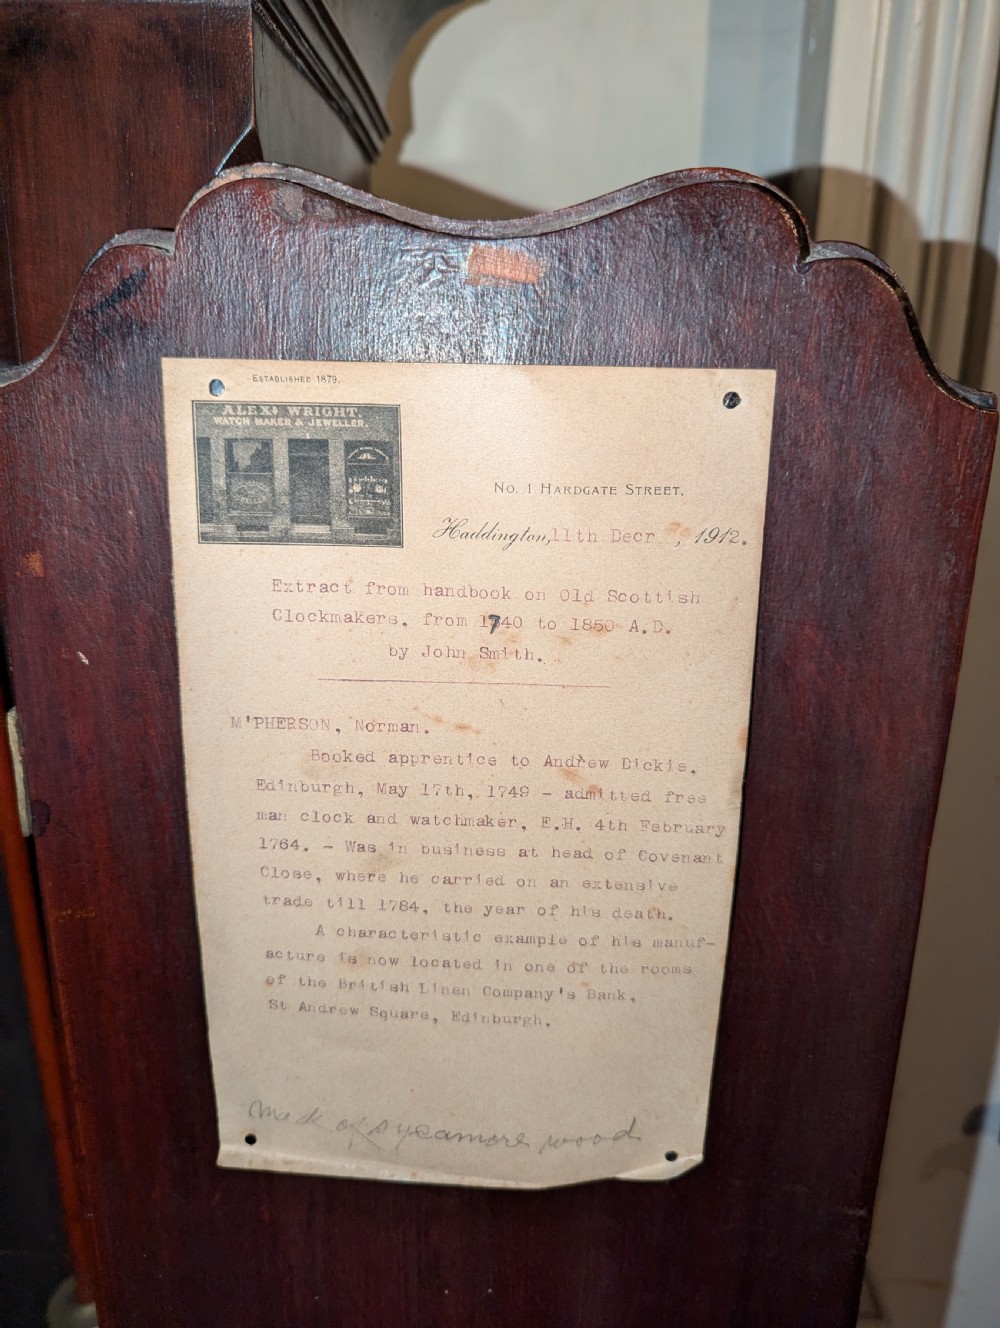 ESTABLISHED 1879.
ALEXR WRIGHT.
WATCH MAKER & JEWELLER.
No. 1 HARDGATE STREET,
Haddington, 11th Decr , 1912.
Extract from handbook on Old Scottish
Clockmakers, from 1740 to 1850 A.D.
by John Smith.
M'PHERSON, Norman.
Booked apprentice to Andrew Dickie,
Edinburgh, May 17th, 1749 - admitted free
man clock and watchmaker, E.H. 4th February
1764. - Was in business at head of Covenant
Close, where he carried on an extensive
trade till 1784, the year of his death.
A characteristic example of his manuf-
acture is now located in one of the rooms
of the British Linen Company's Bank,
St Andrew Square, Edinburgh.
Made of sycamore wood